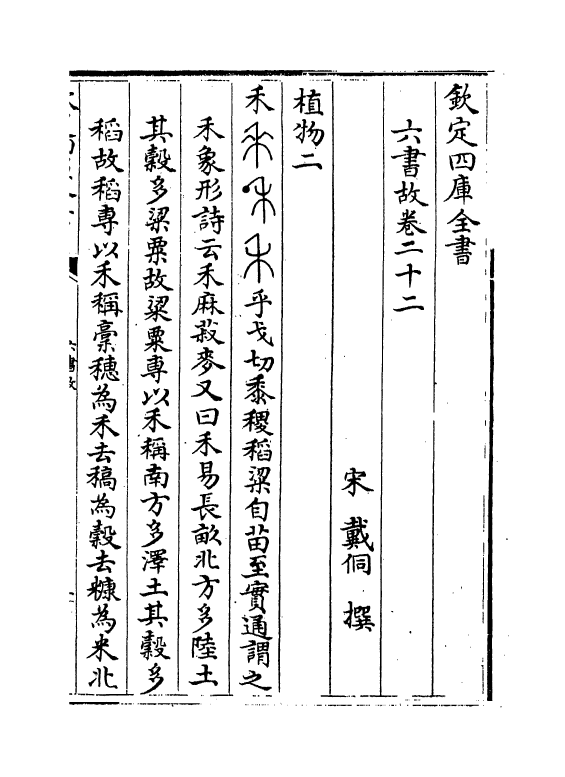 欽定四庫全書
六書故卷二十二
宋 戴侗 撰
植物二
禾乎戈切黍稷稻粱自苗至實通謂之
禾象形詩云禾麻菽麥又曰禾易長畝北方多陸土
其穀多粱粟故粱粟專以禾稱南方多澤土其穀多
稻故稻專以禾稱稾穗為禾去稿為穀去糠為米北
六書故